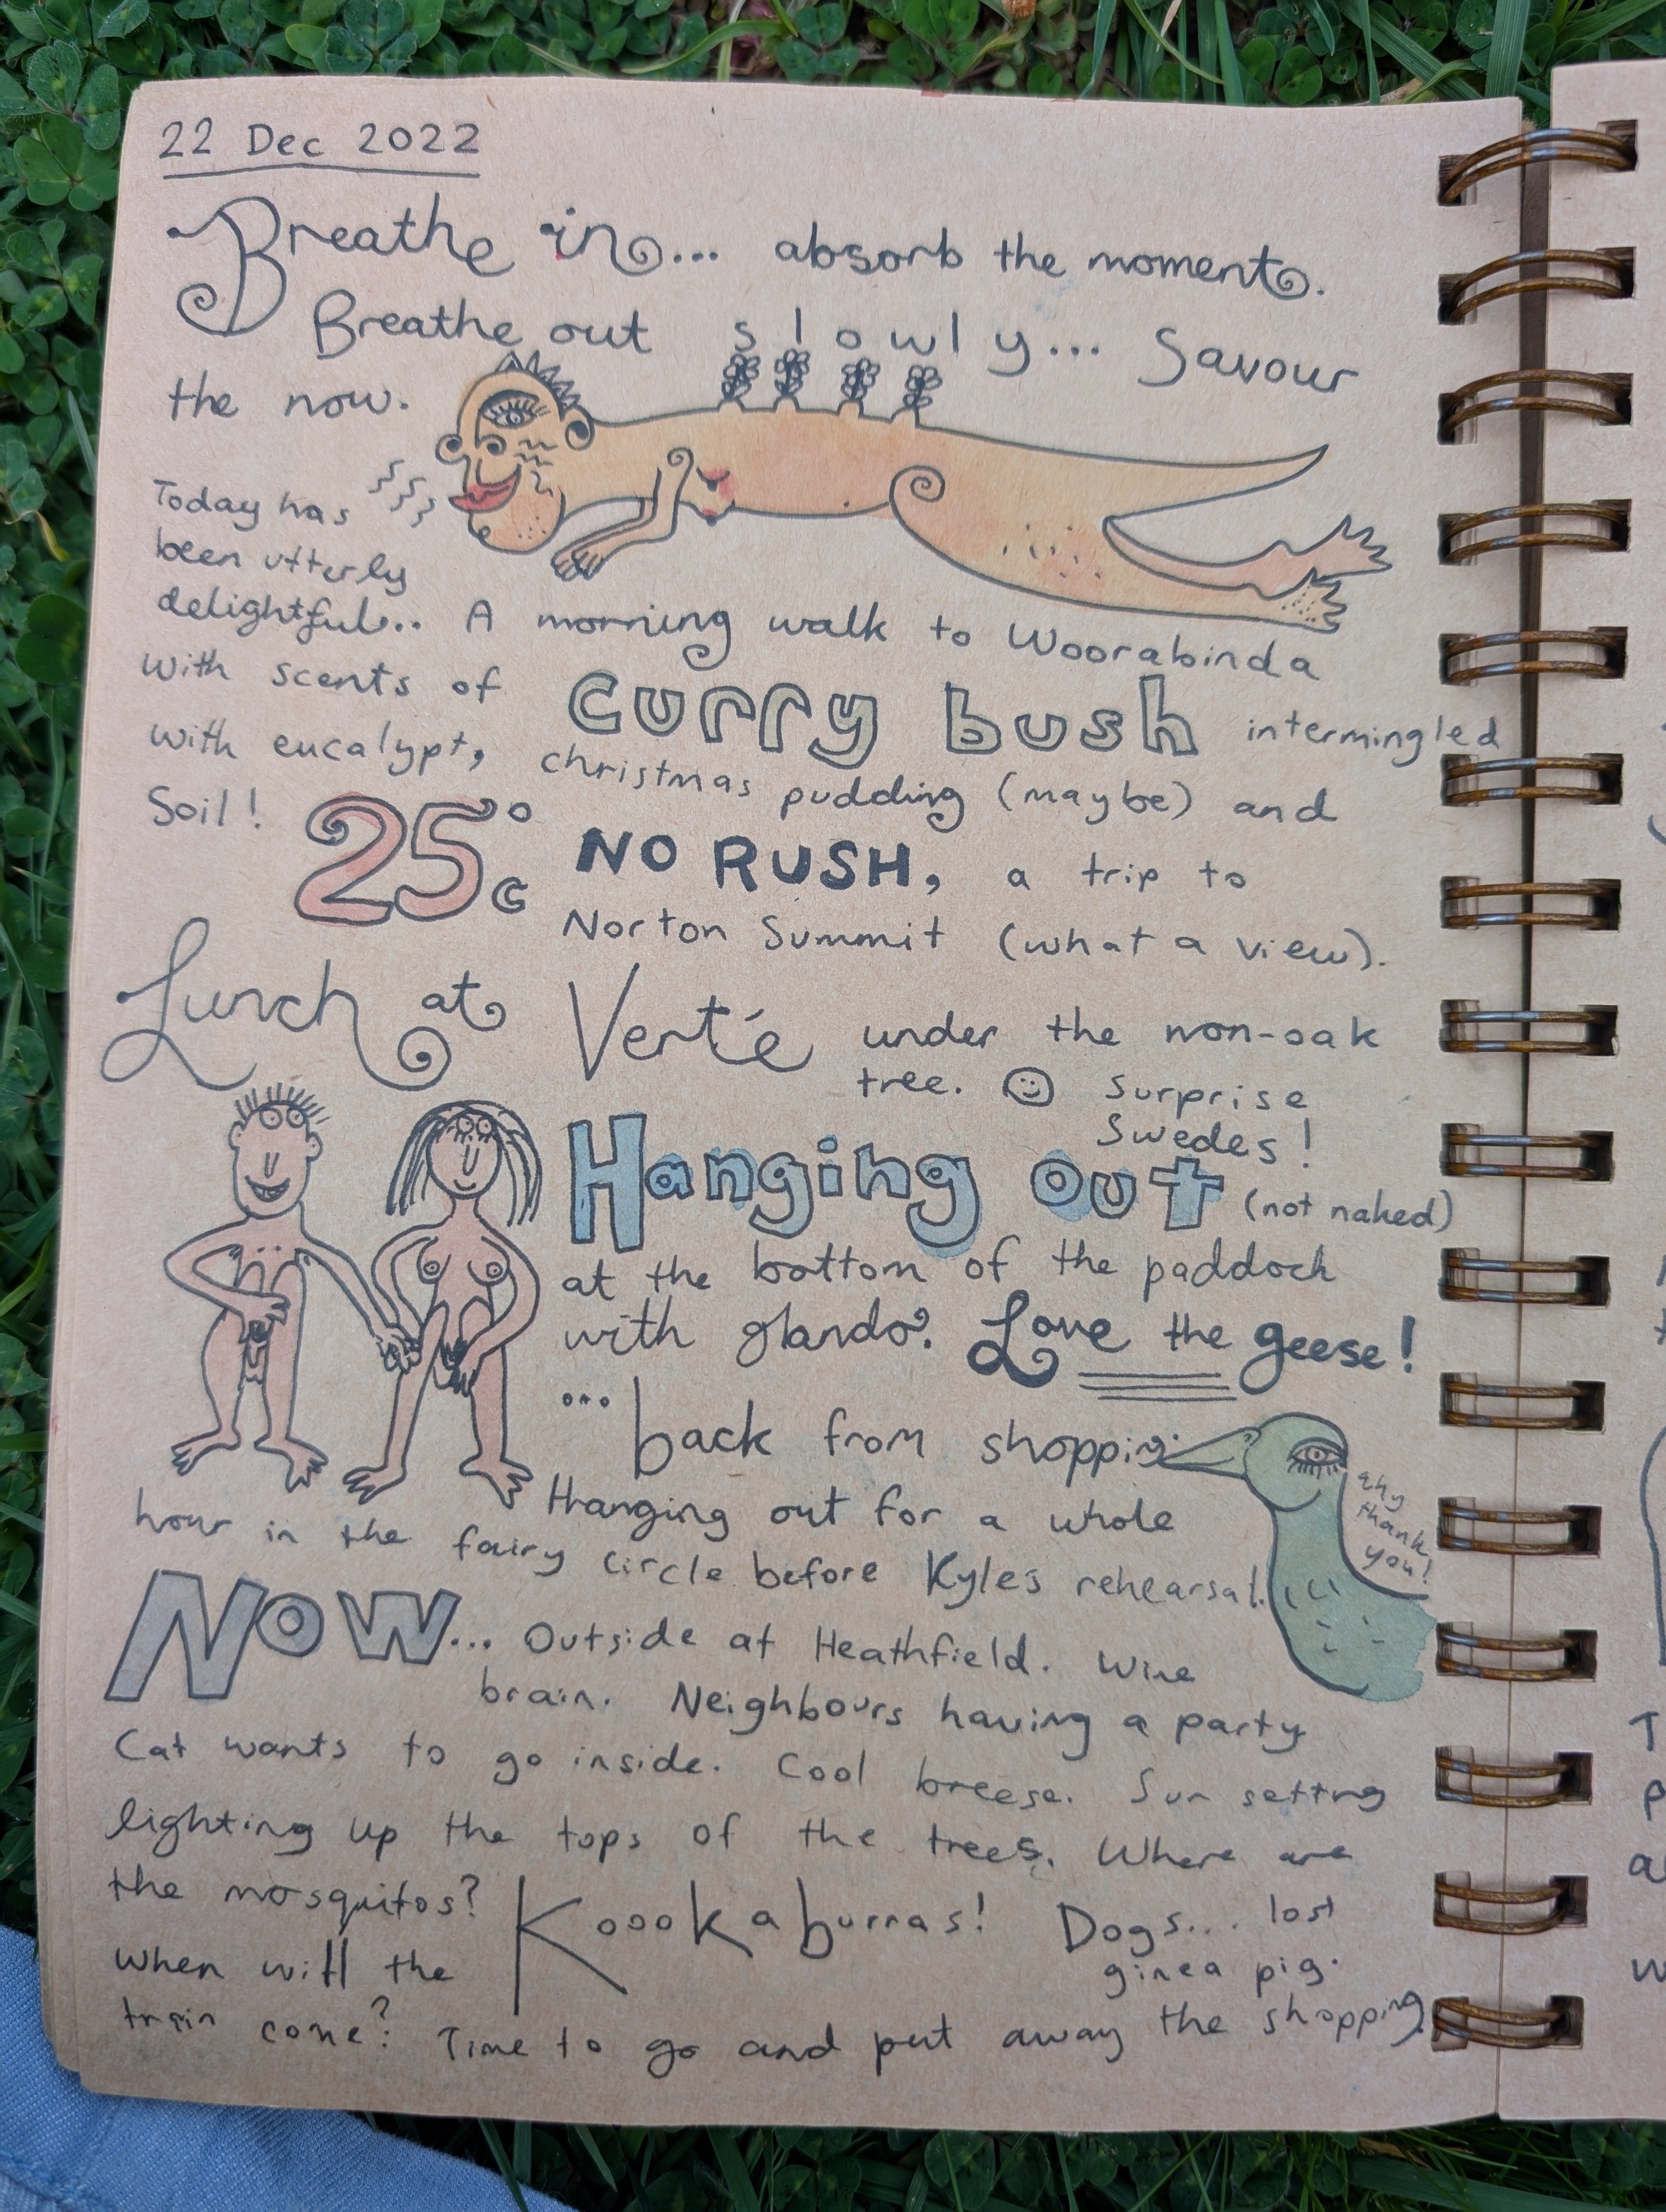 22 Dec 2022
Breathe in... absorb the moment.
Breathe out slowly... Savour
the now.
Today has
been utterly
delightful... A morning walk to Woorabinda
with scents of curry bush intermingled
with eucalypt, christmas pudding (maybe) and
Soil! 25°c NO RUSH, a trip to
Norton Summit (what a view).
Lunch at Verté under the non-oak
tree. ☺ Surprise
Swedes!
Hanging out (not naked)
at the bottom of the paddock
with glando? Love the geese!
... back from shopping.
Hanging out for a whole
hour in the fairy circle before Kyle's rehearsal.
why
thank
you!
NOW... Outside at Heathfield. Wine
brain. Neighbours having a party
Cat wants to go inside. Cool breese. Sun setting
lighting up the tops of the trees. Where are
the mosquitos? Koookaburras! Dogs... lost
ginea pig.
When will the
train come? Time to go and put away the shopping.